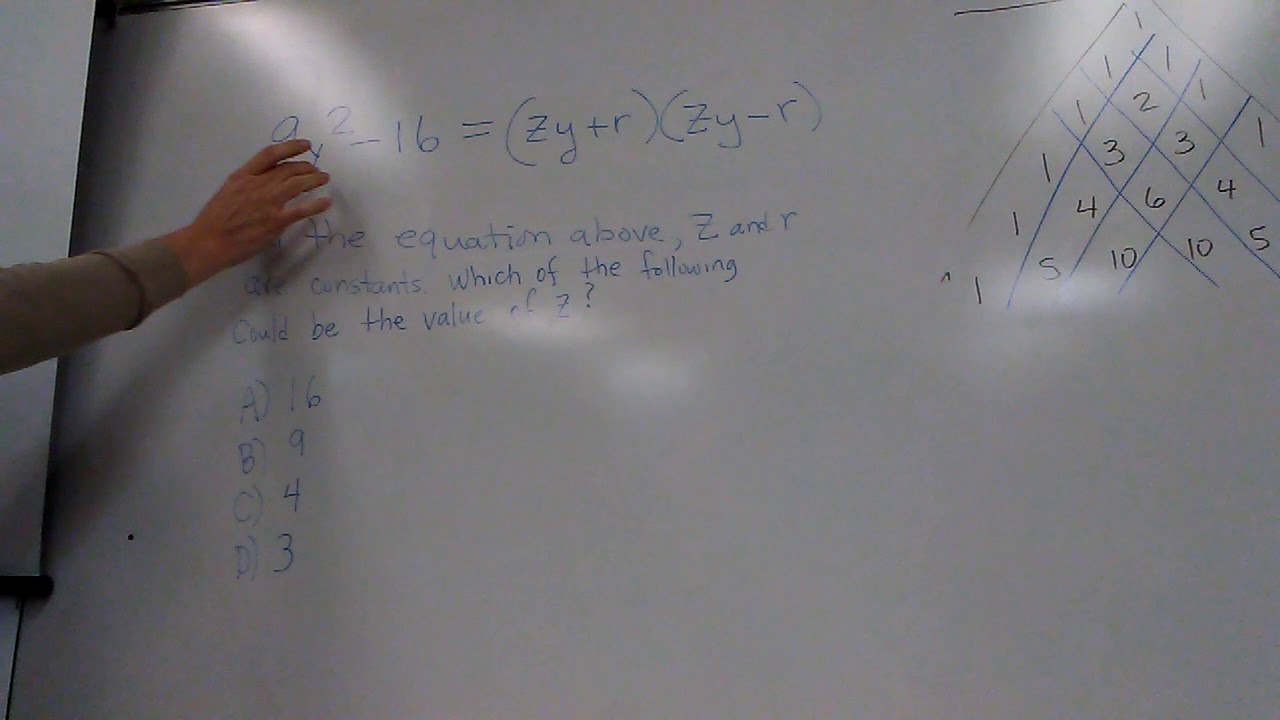 9y² - 16 = (zy+r)(zy-r)
the equation above, z and r
are constants. Which of the following
Could be the value of z?
A) 16
B) 9
C) 4
D) 3
1
1 1
1 2 1
1 3 3 1
1 4 6 4
1 5 10 10 5